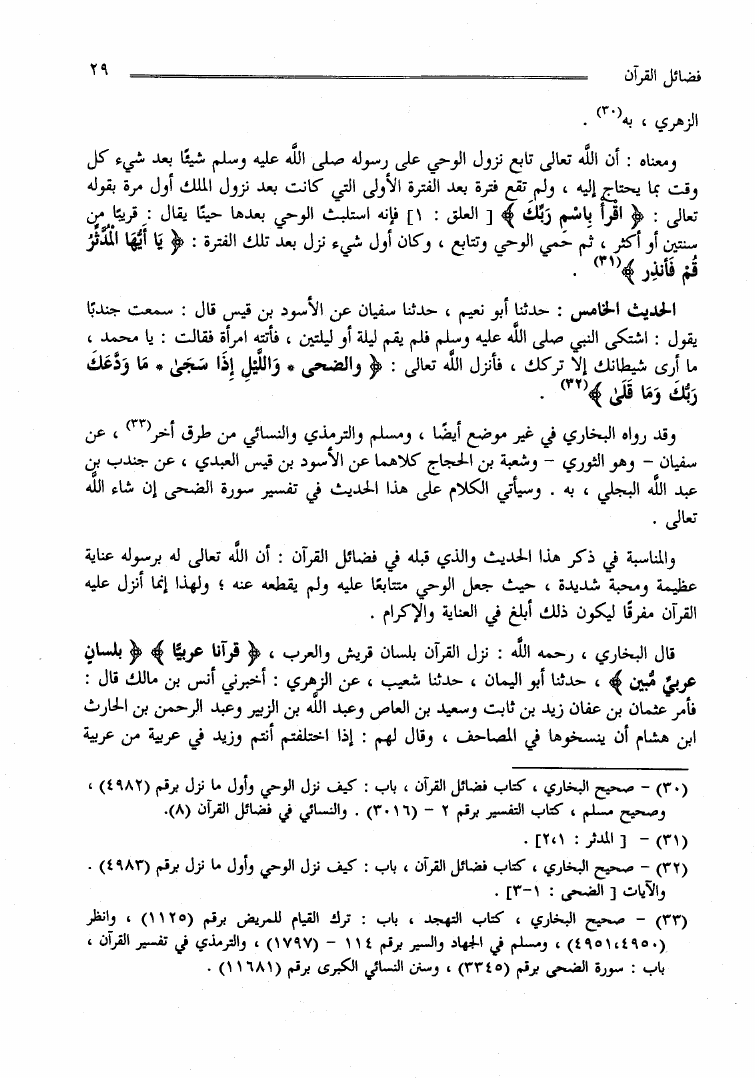 فضائل القرآن ٢٩
الزهري ، به(٣٠) .
ومعناه : أن اللَّه تعالى تابع نزول الوحي على رسوله صلى اللَّه عليه وسلم شيئًا بعد شيء كل
وقت بما يحتاج إليه ، ولم تقع فترة بعد الفترة الأولى التي كانت بعد نزول الملك أول مرة بقوله
تعالى : ﴿ اقْرَأْ بِاسْمِ رَبِّكَ ﴾ [ العلق : ١] فإنه استلبث الوحي بعدها حينًا يقال : قريبًا من
سنتين أو أكثر ، ثم حَمي الوحي وتتابع ، وكان أول شيء نزل بعد تلك الفترة : ﴿ يَا أَيُّهَا الْمُدَّثِّرُ
قُمْ فَأَنذِر ﴾(٣١) .
الحديث الخامس : حدثنا أبو نعيم ، حدثنا سفيان عن الأسود بن قيس قال : سمعت جندبًا
يقول : اشتكى النبي صلى اللَّه عليه وسلم فلم يقم ليلة أو ليلتين ، فأتته امرأة فقالت : يا محمد ،
ما أرى شيطانك إلا تركك ، فأنزل اللَّه تعالى : ﴿ والضحى * وَاللَّيْلِ إِذَا سَجَىٰ * مَا وَدَّعَكَ
رَبُّكَ وَمَا قَلَىٰ ﴾(٣٢) .
وقد رواه البخاري في غير موضع أيضًا ، ومسلم والترمذي والنسائي من طرق أخر(٣٣) ، عن
سفيان – وهو الثوري – وشعبة بن الحجاج كلاهما عن الأسود بن قيس العبدي ، عن جندب بن
عبد اللَّه البجلي ، به . وسيأتي الكلام على هذا الحديث في تفسير سورة الضحى إن شاء اللَّه
تعالى .
والمناسبة في ذكر هذا الحديث والذي قبله في فضائل القرآن : أن اللَّه تعالى له برسوله عناية
عظيمة ومحبة شديدة ، حيث جعل الوحي متتابعًا عليه ولم يقطعه عنه ؛ ولهذا إنما أنزل عليه
القرآن مفرقًا ليكون ذلك أبلغ في العناية والإكرام .
قال البخاري ، رحمه اللَّه : نزل القرآن بلسان قريش والعرب ، ﴿ قرآنا عربيًّا ﴾ ﴿ بلسانٍ
عربيٍّ مُّبين ﴾ ، حدثنا أبو اليمان ، حدثنا شعيب ، عن الزهري : أخبرني أنس بن مالك قال :
فأمر عثمان بن عفان زيد بن ثابت وسعيد بن العاص وعبد اللَّه بن الزبير وعبد الرحمن بن الحارث
ابن هشام أن ينسخوها في المصاحف ، وقال لهم : إذا اختلفتم أنتم وزيد في عربية من عربية
(٣٠) – صحيح البخاري ، كتاب فضائل القرآن ، باب : كيف نزل الوحي وأول ما نزل برقم (٤٩٨٢) ،
وصحيح مسلم ، كتاب التفسير برقم ٢ – (٣٠١٦) . والنسائي في فضائل القرآن (٨).
(٣١) – [ المدثر : ٢،١] .
(٣٢) – صحيح البخاري ، كتاب فضائل القرآن ، باب : كيف نزل الوحي وأول ما نزل برقم (٤٩٨٣) .
والآيات [ الضحى : ١–٣] .
(٣٣) – صحيح البخاري ، كتاب التهجد ، باب : ترك القيام للمريض برقم (١١٢٥) ، وانظر
(٤٩٥١،٤٩٥٠) ، ومسلم في الجهاد والسير برقم ١١٤ – (١٧٩٧) ، والترمذي في تفسير القرآن ،
باب : سورة الضحى برقم (٣٣٤٥) ، وسنن النسائي الكبرى برقم (١١٦٨١) .